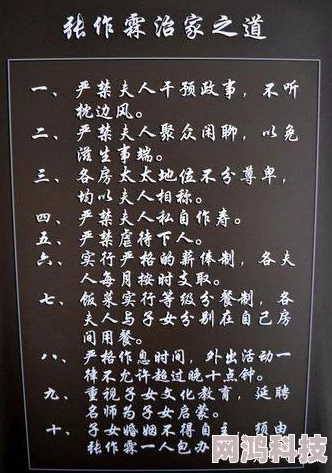 张作霖治家之道
一、严禁夫人干预政事，不听
枕边风。
二、严禁夫人聚众闲聊，以免
滋生事端。
三、各房太太地位不分尊卑，
均以夫人相称。
四、严禁夫人私自作寿。
五、严禁虐待下人。
六、实行严格的薪体制，各夫
人每月按时支取。
七、饭菜实行等级分餐制，各
夫人与子女分别在自己房
间用餐。
八、严格作息时间，外出活动一
律不允许超过晚十点钟。
九、重视子女文化教育，延聘
名师为子女启蒙。
十、子女婚姻不得自主，须由
张作霖一人包办
网鸿科技